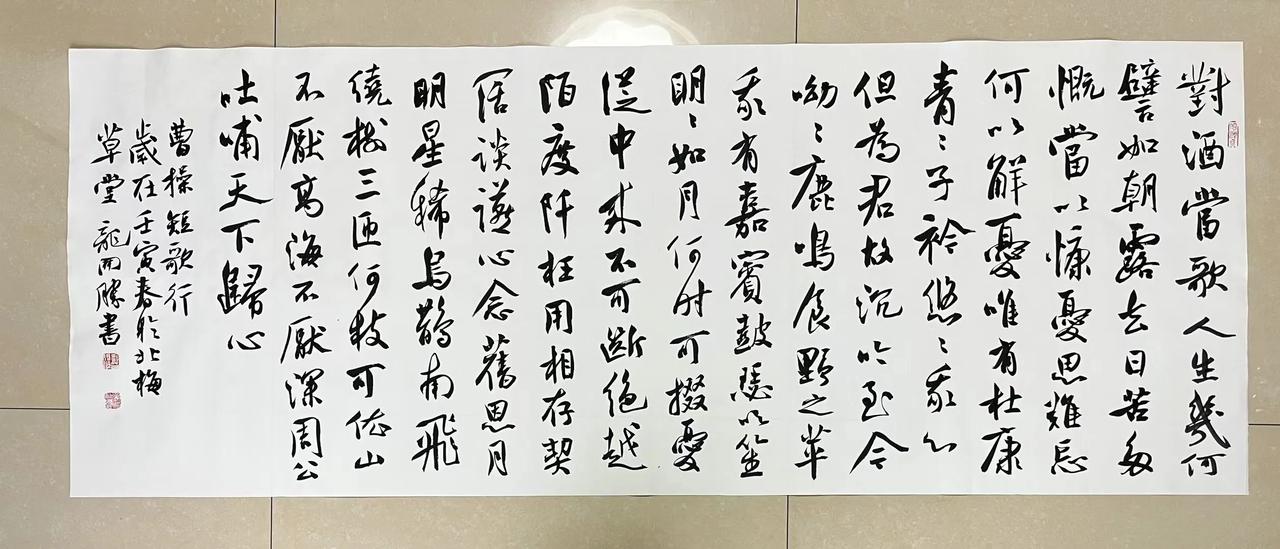 對酒當歌人生幾何
譬如朝露去日苦多
慨當以慷憂思難忘
何以解憂唯有杜康
青〻子衿悠〻我心
但為君故沉吟至今
呦〻鹿鳴食野之苹
我有嘉賓鼓瑟吹笙
明〻如月何时可掇憂
從中來不可斷絕越
陌度阡枉用相存契
闊談讌心念舊恩月
明星稀烏鵲南飛
繞樹三匝何枝可依山
不厭高海不厭深周公
吐哺天下歸心
曹操短歌行
歲在壬寅春於北梅
草堂龍開勝書